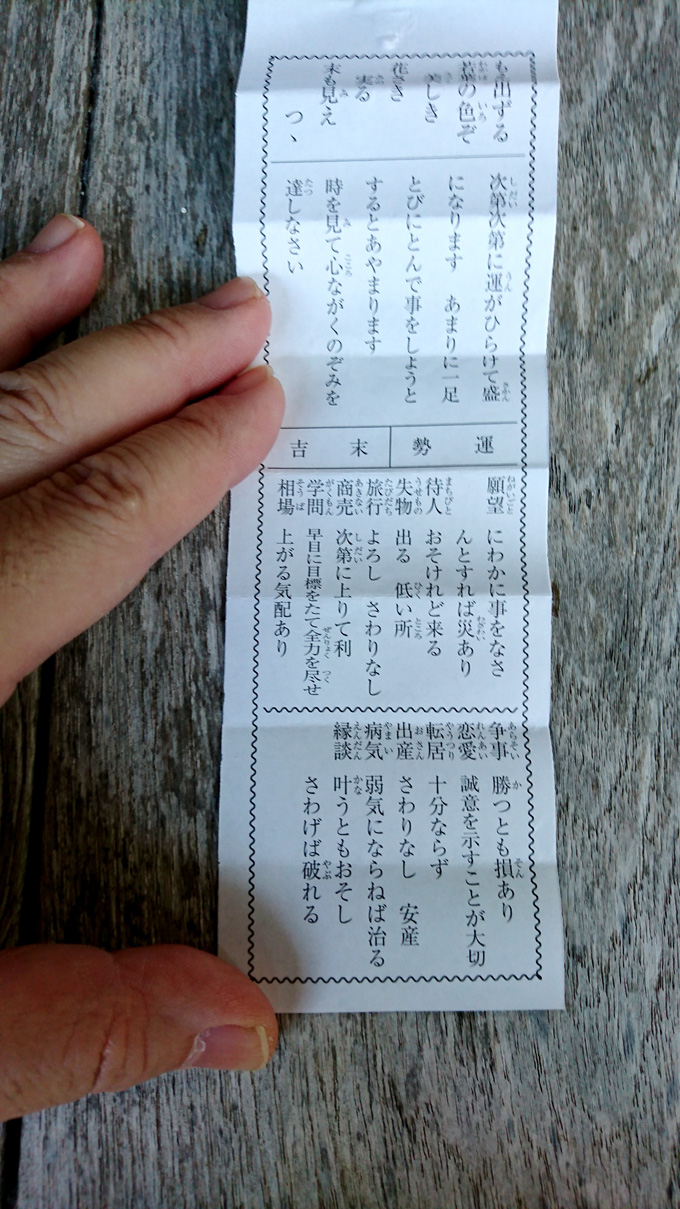 も出ずる
若葉の色ぞ
美しき
花さき
実る
末も見え
つゝ
次第次第に運がひらけて盛
になります　あまりに一足
とびにとんで事をしようと
するとあやまります
時を見て心ながくのぞみを
達しなさい
運勢
末吉
願望　にわかに事をなさ
んとすれば災あり
待人　おそけれど来る
失物　出る　低い所
旅行　よろし　さわりなし
商売　次第に上りて利
学問　早目に目標をたて全力を尽せ
相場　上がる気配あり
争事　勝つとも損あり
恋愛　誠意を示すことが大切
転居　十分ならず
出産　さわりなし　安産
病気　弱気にならねば治る
縁談　叶うともおそし
さわげば破れる